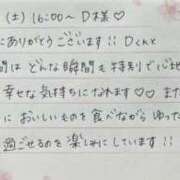 (土) 16:00〜 D様♡
にありがとうございます!! Dくんと
間は どんな瞬間も 特別で 心地
幸せな 気持ちに なれます♡ また
に おいしいものを 食べながら ゆった
過ごせるのを 楽しみに しています